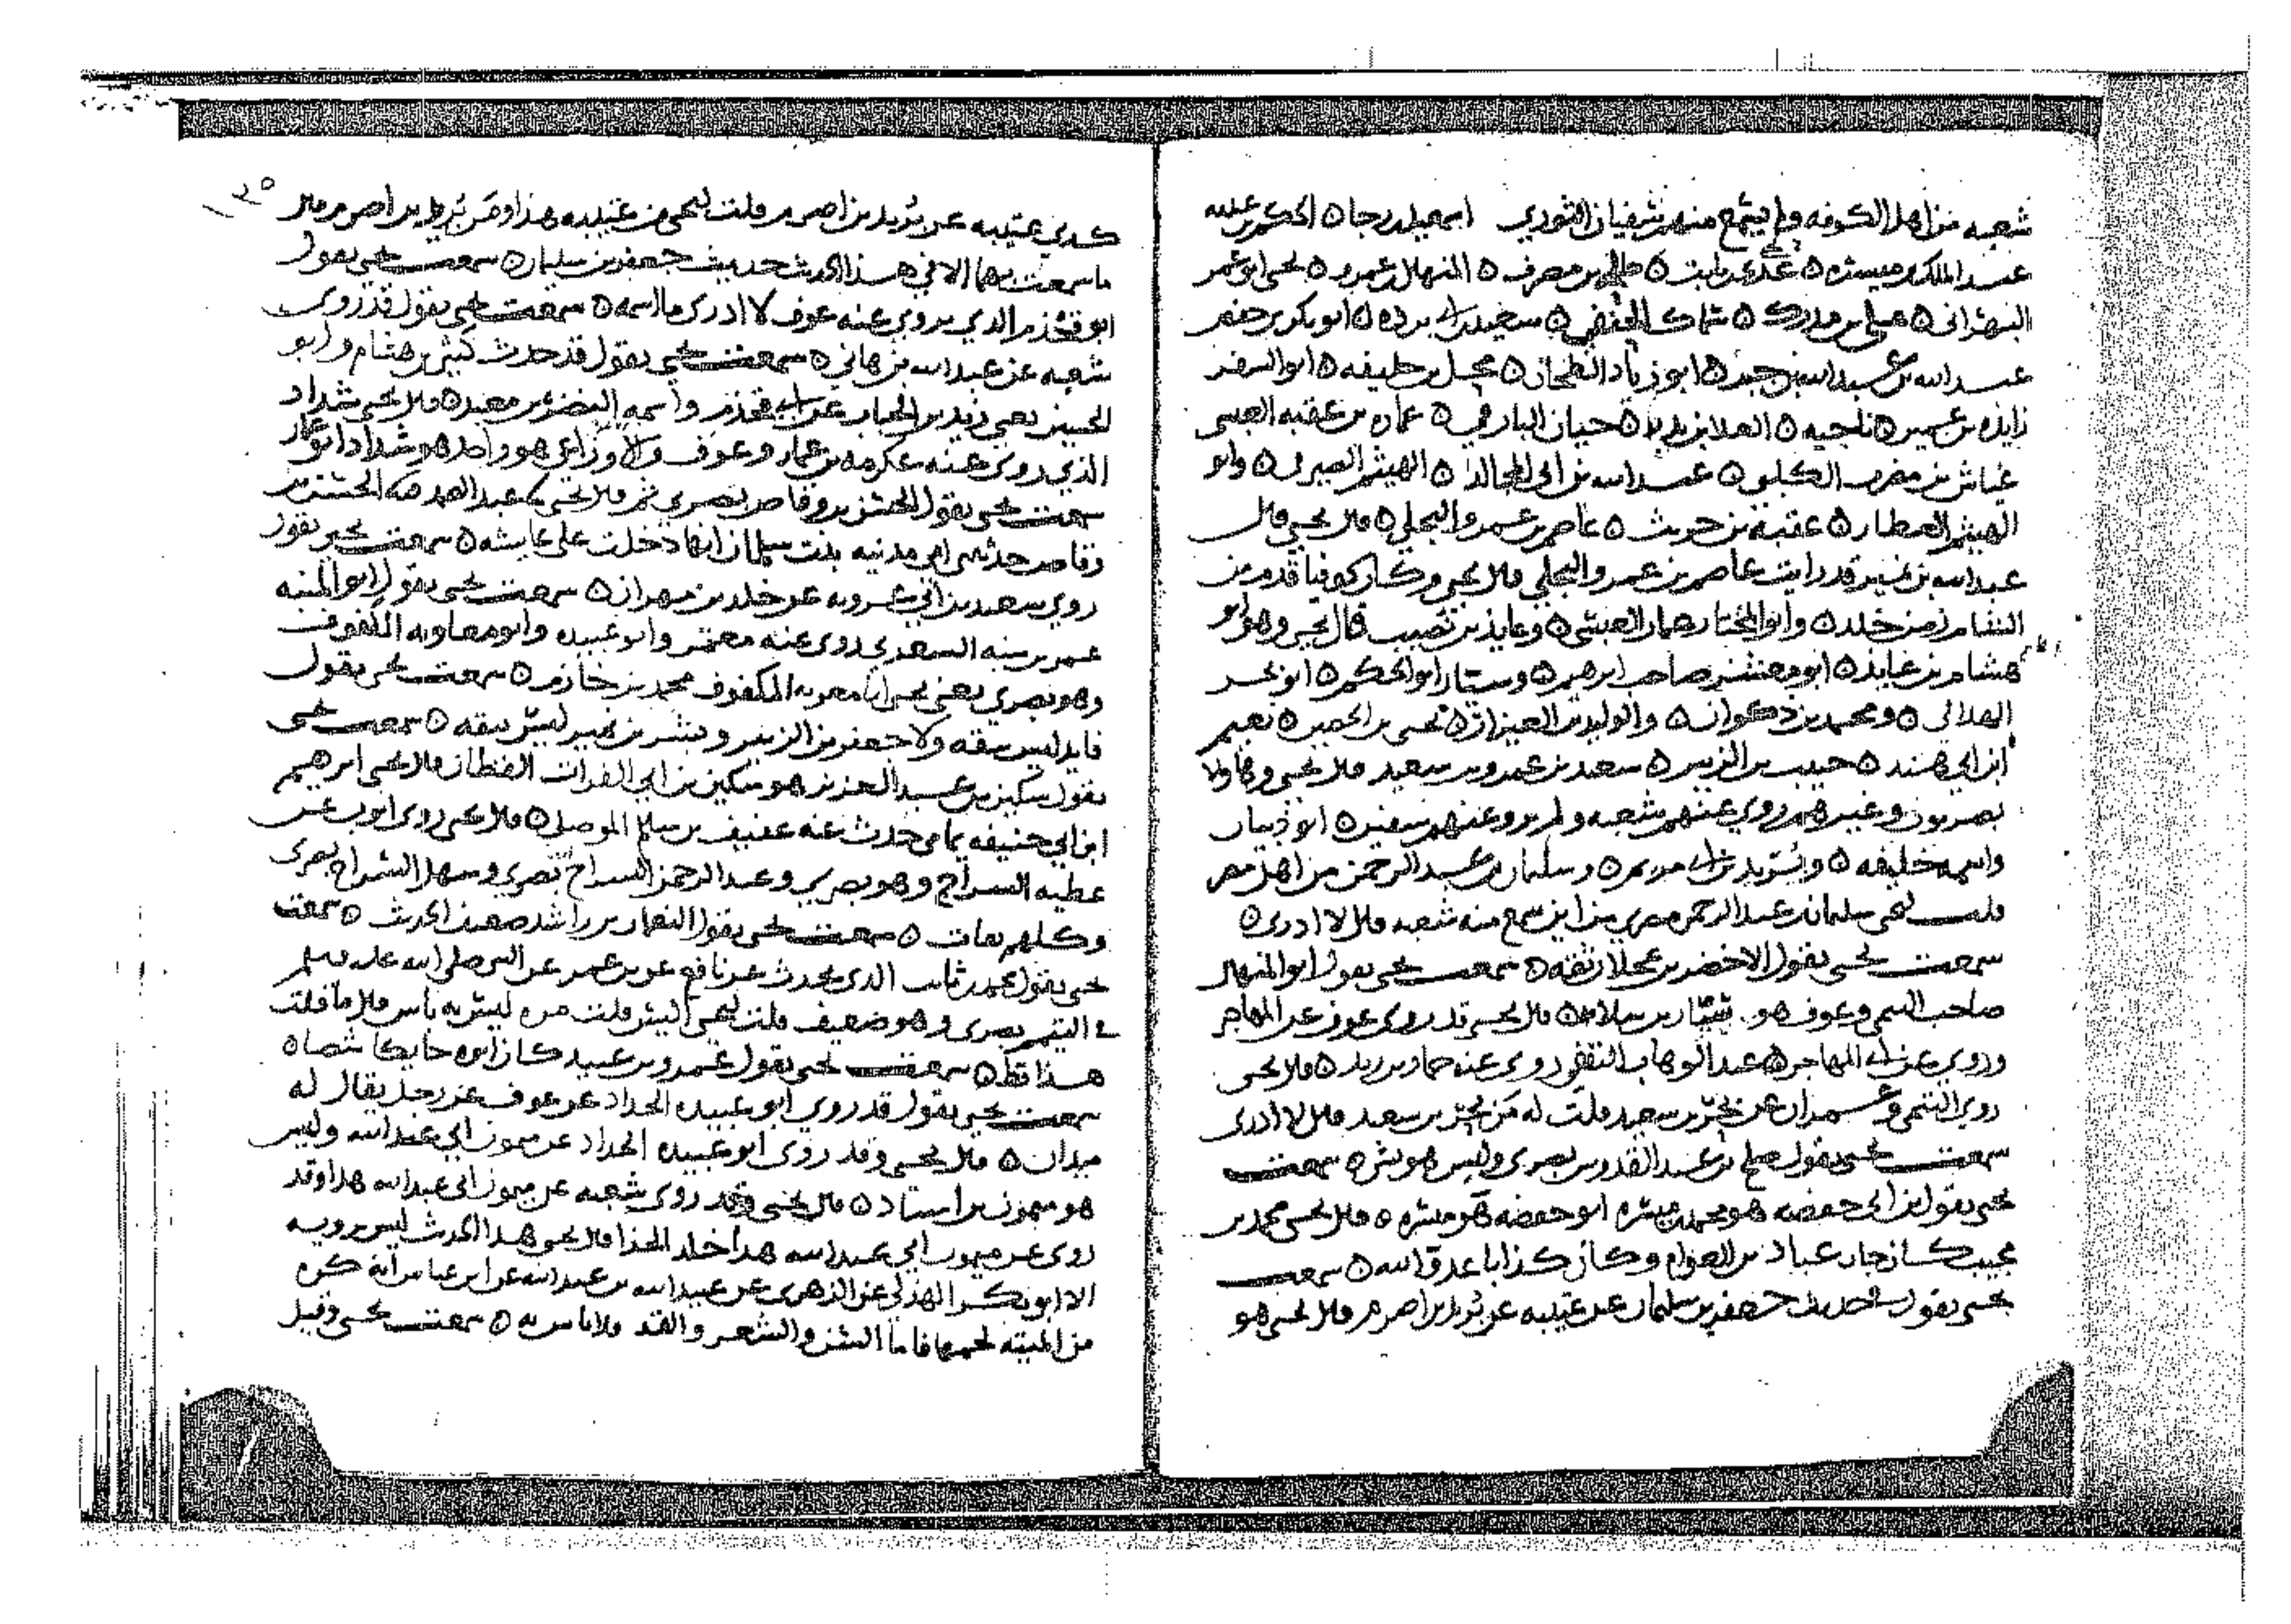 شعبه من اهل الكوفه ولم يسمع منهم سفيان الثوري اسمعيل بن رجا ٥ الحكم بن عتيبه
عبد الملك بن ميسره ٥ عدي بن ثابت ٥ طلحه بن مصرف ٥ المنهال بن عمرو ٥ يحيى ابو عمر
البهراني ٥ علي بن مدرك ٥ سماك الحنفي ٥ سعيد بن ابي برده ٥ ابو بكر بن حفص
عبد الله بن عبيد الله بن جبر ٥ ابو زياد الطحان ٥ محل بن خليفه ٥ ابو السفر
زايده بن عمير ٥ ناجيه ٥ العلا بن بدر ٥ حيان البارقي ٥ عماره بن عقبه العبسي
عياش بن مضرب الكلبي ٥ عبد الله بن ابي المجالد ٥ الهيثم الصيرفي ٥ وابو
الهيثم العطار ٥ عقبة بن حريث ٥ عاصم بن عمرو البجلي ٥ قال يحيى قال
عبد الله بن نمير قد رايت عاصم بن عمرو البجلي قال يحيى وكان كوفيا قدم من
الشام زمن خلد ٥ وابو المختار العبسي ٥ وعايذ بن نصيب قال يحيى وهو ابو
هشام بن عايذ ٥ ابو معشر صاحب ابرهيم ٥ وسيار ابو الحكم ٥ ابو بحر
الهلالي ٥ ومحمد بن ذكوان ٥ والوليد بن العيزار ٥ يحيى بن الحصين ٥ نعيم
ابن ابي هند ٥ حبيب بن الزبير ٥ سعيد بن عمرو بن سعيد قال يحيى وهاولا
بصريون وغيرهم روى عنهم شعبه ولم يرو عنهم سفين ٥ ابو ذبيان
واسمه خليفه ٥ ويزيد بن ابي مريم ٥ وسليمان بن عبد الرحمن من اهل مصر
قلت ليحيى سليمان بن عبد الرحمن مصري من اين سمع منه شعبه قال لا ادري ٥
سمعت يحيى يقول الاخضر بن عجلان ثقه ٥ سمعت يحيى يقول ابو المنهال
صاحب التيمي وعوف هو سيار بن سلامه ٥ قال يحيى قد روى عوف عن المهاجر
وروى عن ابي المهاجر ٥ عبد الوهاب الثقفي روى عنه حماد بن زيد ٥ قال يحيى
روى التيمي وعمران عن بحر بن سعيد قلت له من بحر بن سعيد قال لا ادري
سمعت يحيى يقول صلح بن عبد القدوس بصري وليس هو بشي ٥ سمعت
يحيى يقول ابن ابي حفصه هو محمد بن ميسره ابو حفصه هو ميسره ٥ قال يحيى محمد بن
مجيب كان جار عباد بن العوام وكان كذابا عدو الله ٥ سمعت
يحيى يقول في حديث جعفر بن سليمان عن عتيبه عن بريد بن اصرم قال يحيى هو
كذي عتيبه عن بريد بن اصرم قلت ليحيى من عتيبه هذا ومن بريد بن اصرم قال
ما سمعت بهما الا في هذا الحديث حديث جعفر بن سليمان ٥ سمعت يحيى يقول
ابو قحذم الذي يروي عنه عوف لا ادري ما اسمه ٥ سمعت يحيى يقول قد روى
شعبه عن عبد الله بن هاني ٥ سمعت يحيى يقول قد حدث كثير بن هشام وابو
الحسين يعني زيد بن الحباب عن ابي قحذم واسمه النضر بن معبد ٥ قال يحيى شداد
الذي روى عنه عكرمه بن عمار وعوف والاوزاعي هو واحد هو شداد ابو عمار
سمعت يحيى يقول الخشن بن وقاص بصري ثم قال يحيى عبد الصمد الخشن بن
وقاص حدثتني ابي مدنيه بنت سليمان انها دخلت على عايشه ٥ سمعت يحيى يقول
روى سعيد بن ابي عروبه عن خلد بن مهران ٥ سمعت يحيى يقول ابو المنبه
عمر بن سنه السعدي روى عنه معتمر وابو عبيده وابو معاويه المكفوف
وهو بصري يعني يحيى ابا معويه المكفوف محمد بن خازم ٥ سمعت يحيى يقول
فايد ليس بثقه ولا جعفر بن الزبير وبشر بن نمير ليس بثقه ٥ سمعت يحيى
يقول سكين بن عبد العزيز هو سكين بن ابي الفرات القطان قال يحيى ابرهيم
ابن ابي حنيفه يمامي حدث عنه عفيف بن سلم الموصلي ٥ قال يحيى روى ايوب عن
عطيه السراج وهو بصري وعبد الرحمن السراج بصري وسهل السراج بصري
وكلهم ثقات ٥ سمعت يحيى يقول النعمان بن راشد ضعيف الحديث ٥ سمعت
يحيى يقول محمد بن ثابت الذي يحدث عن نافع عن بن عمر عن النبي صلى الله عليه وسلم
في التيمم بصري وهو ضعيف قلت ليحيى اليس قلت مره ليس به باس قال ما قلت
هذا قط ٥ سمعت يحيى يقول عمرو بن عبيد كان ابوه حايكا
سمعت يحيى يقول قد روى ابو عبيده الحداد عن عوف عن رجل يقال له
ميدان ٥ قال يحيى وقد روى ابو عبيده الحداد عن ميمون ابي عبد الله وليس
هو ميمون بن استاذ ٥ قال يحيى وقد روى شعبه عن ميمون ابي عبد الله هذا وقد
روى عن ميمون ابي عبد الله هذا خلد الحذا قال يحيى هذا الحديث ليس يرويه
الا ابو بكر الهذلي عن الزهري عن عبيد الله بن عبد الله عن ابن عباس انه كره
من الميته لحمها فاما السن والشعر والقد فلا باس به ٥ سمعت يحيى وقيل